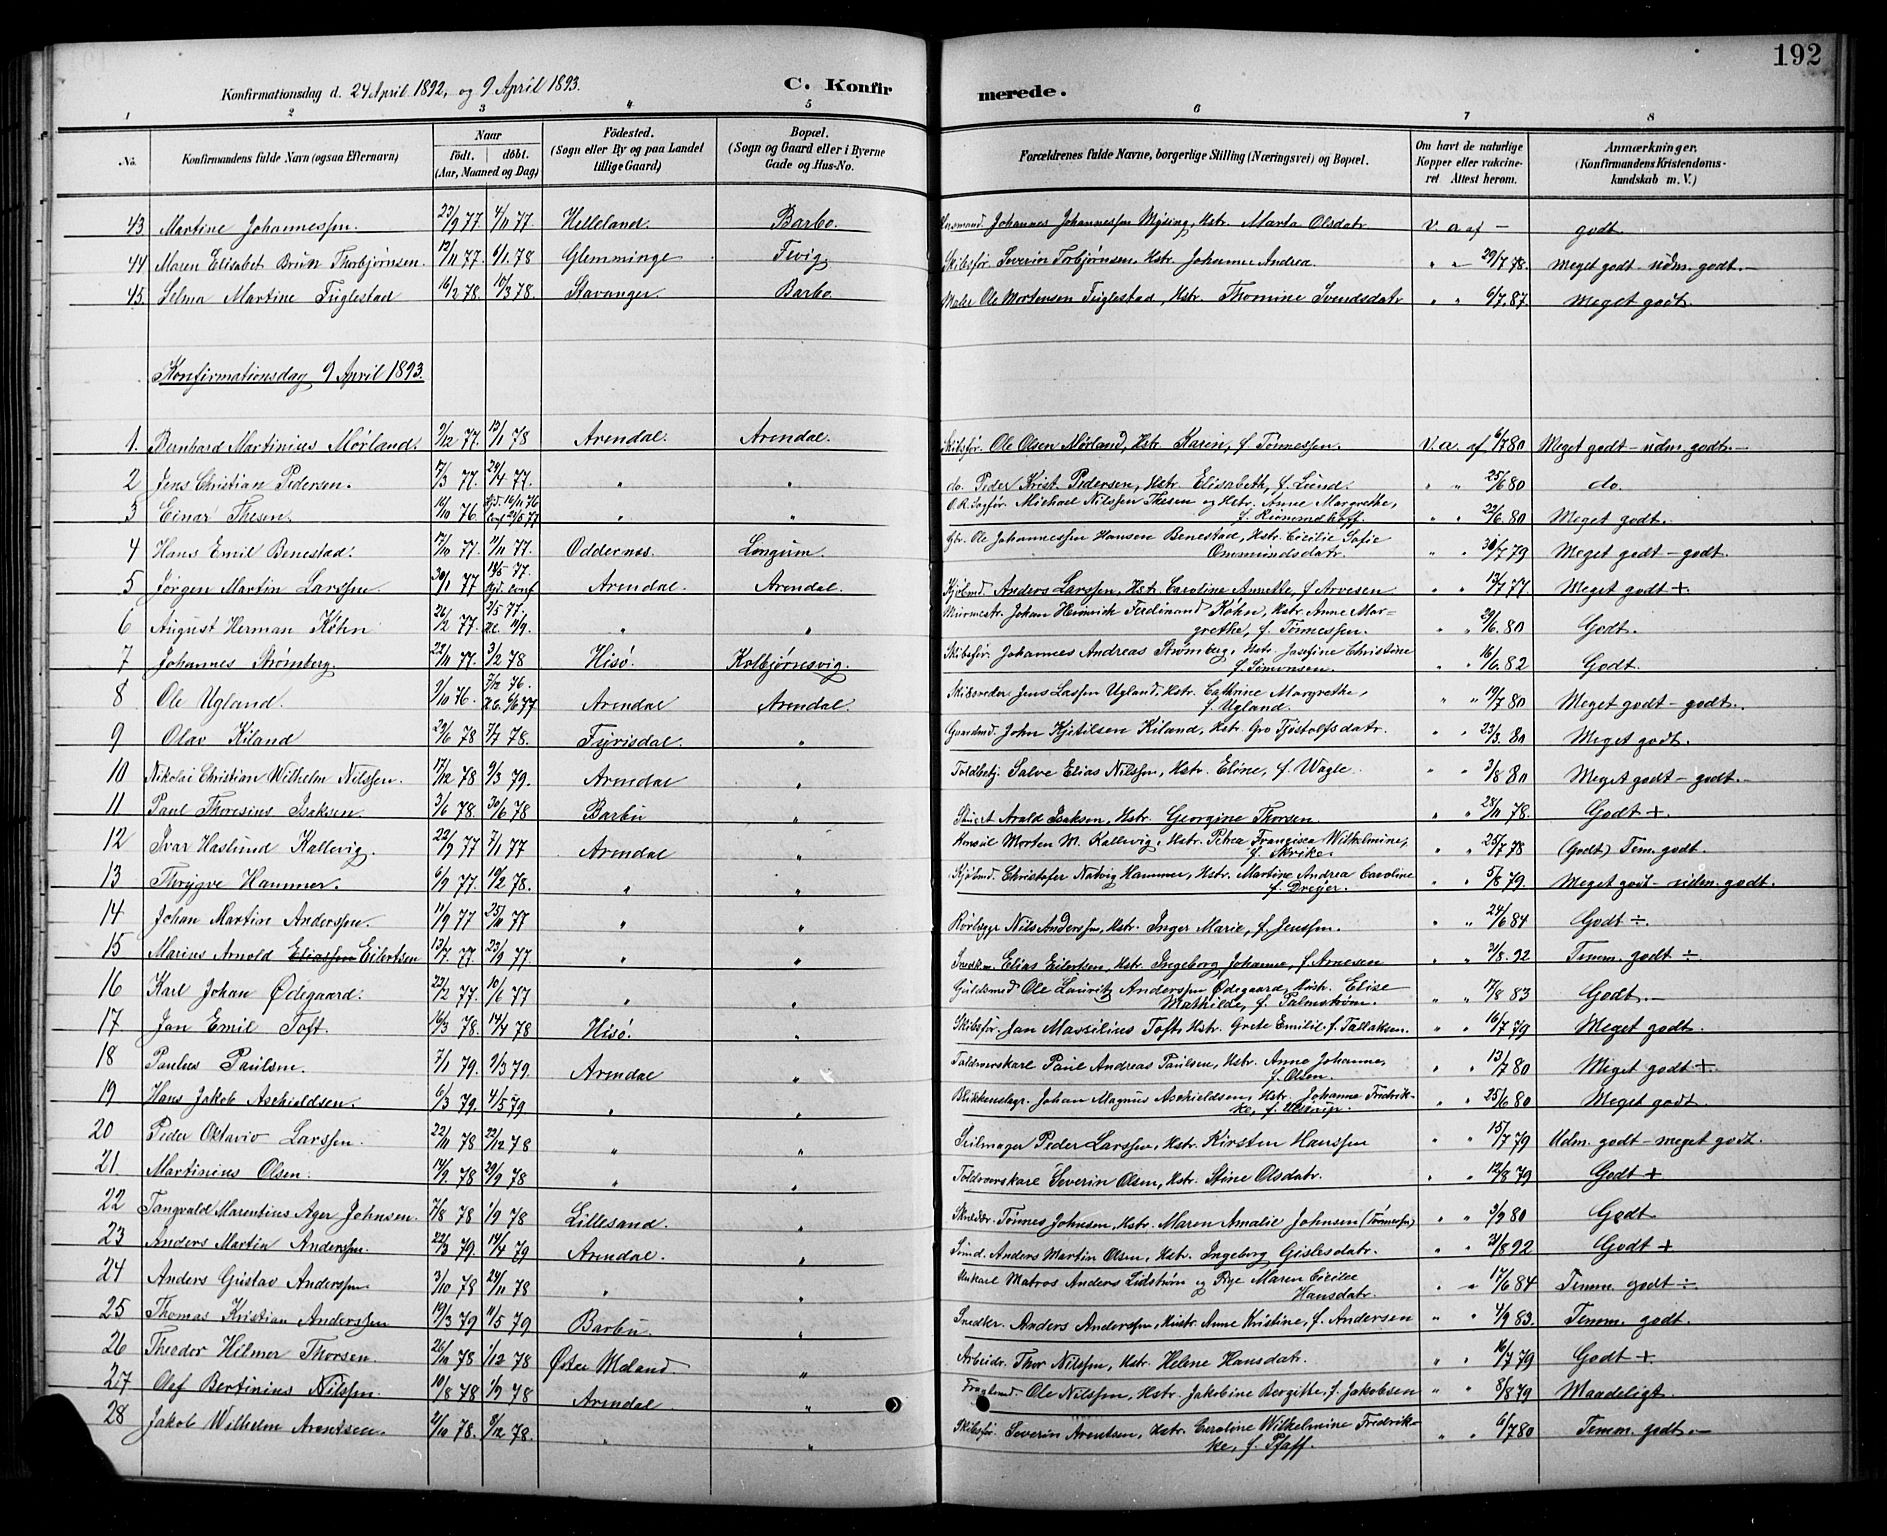 192
Konfirmationsdag d. 24 April 1892, og 9 April 1893.
C. Konfirmerede.
1 2 3 4 5 6 7 8
No. Konfirmandens fulde Navn (ogsaa Efternavn) Naar födt. döbt. (Aar, Maaned og Dag) Födested. (Sogn eller By og paa Landet tillige Gaard) Bopæl. (Sogn og Gaard eller i Byerne Gade og Hus-No. Forældrenes fulde Navne, borgerlige Stilling (Næringsvei) og Bopæl. Om havt de naturlige Kopper eller vakcineret Attest herom. Anmærkninger. (Konfirmandens Kristendomskundskab m. V.)
43 Martine Johannessen 23/9 77 4/11 77 Helleland. Barbo. Husmand. Johannes Johannessen Mysing, Hstr. Marta Olsdatr V. a. af – godt.
44 Maren Elisabet Brun Thorbjørnsen. 12/11 77. 6/1. 78 Glemminge Fevig Skibsfør. Severin Torbjørnsen, Hstr. Johanne Andrea. " " 29/7 78. Meget godt – udm. godt. –
45 Selma Martine Fuglestad 16/2 78. 10/3 78. Stavanger. Barbo. Maler Ole Mortensen Fuglestad, Hstr. Thomine Svendsdatr " " 6/7. 87. Meget godt.
Konfirmationsdag 9 April 1893.
1. Bernhard Martinius Mørland. 9/12 77. 12/1 78 Arendal. Arendal. Skibsfør. Ole Olsen Mørland, Hstr. Karin, f. Tønnessen. V. a. af 6/7 80 Meget godt – udm. godt. –
2 Jens Christian Pedersen. 17/3 77. 24/4 77. " " do. Peder Krist. Pedersen, Hstr. Elisabeth, f. Lund. " " 25/6 80 do.
3 Einar Thesen. 16/10 76. Hjd. 16/11 76 Conf 24/5 77 " " O.R. Sagfør. Michael Nilssen Thesen og Hstr. Anne Margrethe, " " 22/6. 80 Meget godt.
4 Hans Emil Benestad. 17/10 77. 11/11 77. Oddernes. Longum. Gbr. Ole Johannessen Hansen Benestad, Hstr. Cicilie Sofie Ommundsdatr. " " 30/7 79 Meget godt – godt.
5 Jørgen Martin Larssen. 30/1 77 14/5 77. Hjd. Conf Arendal. Arendal. Kjøbmd. Anders Larssen, Hstr. Caroline Annette, f. Arvesen. " " 13/7 77. Meget godt +
6 August Herman Køhn 26/2 77. " " Murmestr. Johan Heinrich Ferdinand Køhn, Hstr. Anne Margrethe, f. Tønnessen. " " 29/6. 80 Godt.
7 Johannes Strømberg. 22/11 77. 3/2 78 Hisø. Kolbjørnsvig. Skibsfør. Johannes Andreas Strømberg, Hstr. Josefine Christine f. Simonsen. " " 16/6. 82 Godt.
8 Ole Ugland. 9/10 76. Arendal Arendal. Skibsreder Jens Lassen Ugland, Hstr. Cathrine Margrethe, f. Ugland. " " 19/7 80 Meget godt – godt.
9 Olav Kiland 29/6 78 7/7 78. Fyrisdal. " Gaardmd. John Kjetilsen Kiland, Hstr. Gro Tjøstolfsdatr. " " 23/3. 80 Meget godt.
10 Nikolai Christian Wilhelm Nilssen. 17/12 78 9/3 79. Arendal " Toldbetj. Salve Elias Nilssen, Hstr. Eline, f. Wagle. " " 2/8 80 Meget godt – godt. –
11 Paul Thoresius Isaksen. 3/6 78. 30/6 78 Barbu " Stuert Arald Isaksen, Hstr. Georgine Thorsen. " " 28/11 78. Godt +.
12 Ivar Haslund Kallevig. 22/9 77 7/1 77 Arendal " Konsul Morten M. Kallevig, Hstr. Petrea Francisca Wilhelmine, f. Skrike. " " 25/7 78 (Godt) Tem. godt.
13 Thrygve Hammer. 6/9 77. 19/2 78. " " Kjøbmd. Christofer Natvig Hammer, Hstr. Martine Andrea Caroline f. Dreyer. " " 5/8 79. Meget godt – udm. godt.
14 Johan Martin Anderssen. 11/9 77 25/11 77 " " Nils Anderssen, Hstr. Inger Marie, f. Jenssen. " " 24/6 84 Godt ÷.
15 Marius Arnold Eliassen Eilertsen 13/7. 77 23/9 77 " " Snedkm. Elias Eilertsen, Hstr. Ingeborg Johanne, f Arnesen " " 21/8. 92 Temm. godt ÷
16 Karl Johan Ødegaard. 22/2 77. 10/6 77 " " Guldsmed Ole Lauritz Anderssen Ødegaard, Hustr. Elise Mathilde, f. Palmstrøm. " " 17/8 83 Godt. –
17 Jan Emil Toft. 16/3 78. 14/4 78 Hisø. " Skibsfør. Jan Massilius Toft, Hstr. Grete Emilie f. Tallaksen. " " 16/7 79 Meget godt.
18 Paulus Paulsen. 7/1 79 9/3 79. Arendal " Toldroerskarl Paul Andreas Paulsen, Hstr. Anne Johanne, f. Olsen. " " 13/7 80 Meget godt +
19 Hans Jakob Aschieldsen. 6/3 79. 4/5 79 " " Blikkenslagr. Johan Magnus Aschieldsen, Hstr. Johanne Fredrikke, f. Ulstrup. " " 25/6 80 Meget godt.
20 Peder Oktavio Larssen. 22/11 78 22/12 78 " " Seilmager Peder Larssen, Hstr. Kirsten Hanssen " " 15/7 79 Udm. godt – meget godt.
21 Martinius Olsen. 14/9. 78 29/9 78 " " Toldroerskarl Severin Olsen, Hstr. Stine Olsdatr. " " 12/8 79 Godt +
22 Tangvald Marentius Ager Johnsen. 7/8 78 1/9 78 Lillesand. " Tønnes Johnsen, Hstr. Maren Amalie Johnsen (Tønnessen) " " 3/9 80 Godt
23 Anders Martin Anderssen. 22/3 79 14/4 79 Arendal. " Anders Martin Olsen, Hstr. Ingeborg Gislesdatr. " " 21/8 92 Godt +
24 Anders Gustav Anderssen 3/10 78 24/11 78 " " Unkarl Matros Anders Lidstrøm og Pige Maren Cicilie Hansdatr. " " 17/6 84 Temm. godt ÷
25 Thomas Kristian Anderssen 19/3 79 11/5 79 Barbu. " Snedker. Anders Anderssen, Hustr. Anne Kristine, f. Andersen " " 4/9 83. Temm. godt.
26 Theodor Hilmer Thorsen. 26/10 78 1/12 78 Østre Moland. " Arbeidr. Thor Nilssen, Hstr. Helene Hansdatr. " " 16/7 79 Godt +
27 Olaf Bertinius Nilssen. 10/8 78 1/9 78 Arendal. " Ole Nilssen, Hstr. Jakobine Bergitte, f. Jakobsen " " 8/8 79 Maadeligt.
28 Jakob Wilhelm Arentsen. 21/10 78. 8/12 78. " " Skibsfør. Severin Arentsen, Hstr. Caroline Wilhelmine Fredrikke, f. Pfaff. " " 6/7 80 Temm. godt. –